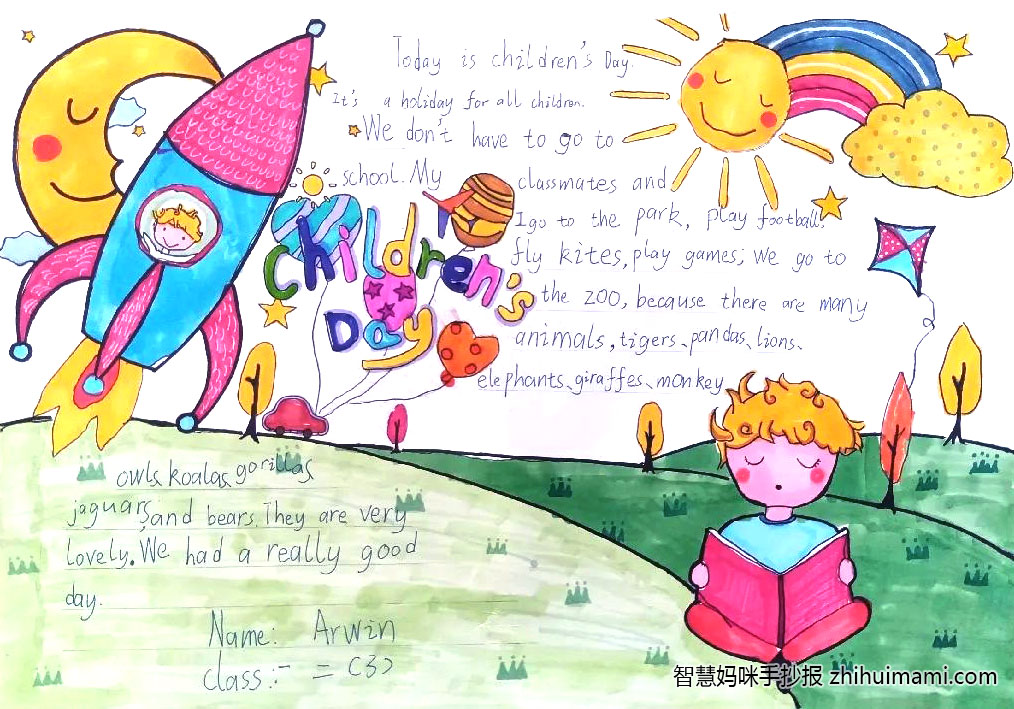 Today is children's Day.
It's a holiday for all children.
We don't have to go to
school. My classmates and
I go to the park, play football,
fly kites, play games, We go to
the zoo, because there are many
animals, tigers、pandas、lions、
elephants、giraffes、monkey
Children's
Day
owls、koalas、gorillas、
jaguars、and bears. They are very
lovely. We had a really good
day.
Name: Arwin
class: 二 (3)
智慧妈咪手抄报 zhihuimami.com